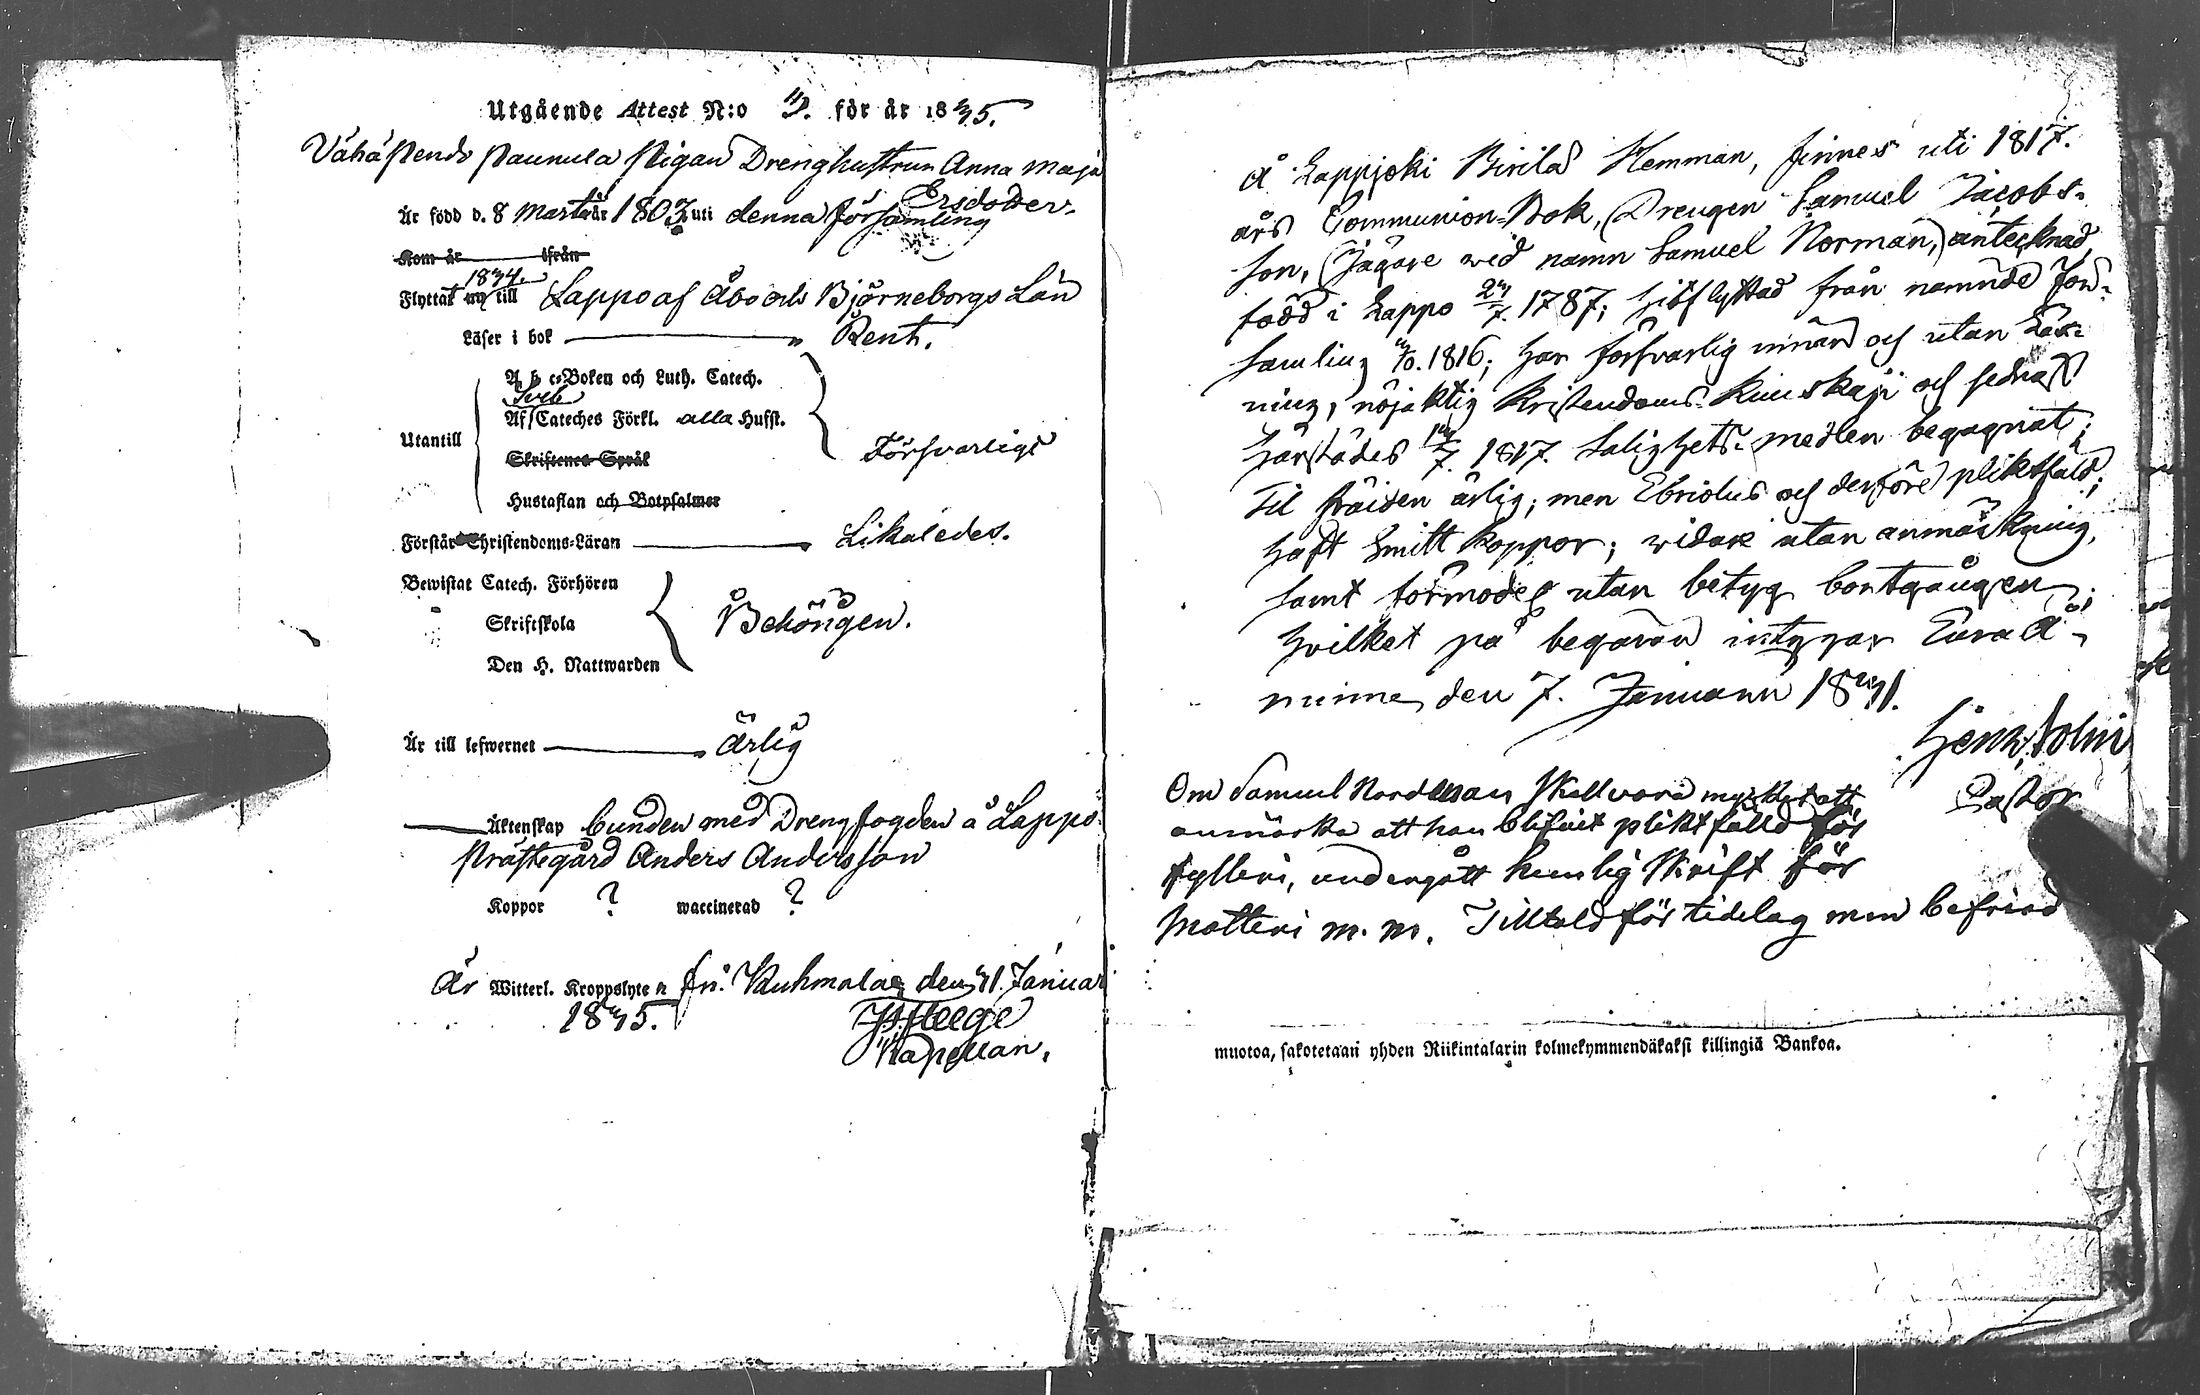 Utgående Attest N:o 3. för år 1835.
Vähäpends Paunula Pigan Drenghustrun Anna Maja
Ersdotter.
Är född d. 8 Martii år 1807 uti denna församling
Kom år ifrån
1834.
Flyttat till Lappo af Åbo och Björneborgs Län
Läser i bok Rent.
A b c-Boken och Luth. Catech.
Af Cateches Förkl. alla Husst.
Utantill
Försvarligt
Skriftenes Språk
Hustaflan och Botpsalmer
Förstår Christendoms-Läran Likaledes.
Bewistat Catech. Förhören
Skriftskola Behörigen.
Den H. Nattwarden
Är till lefwernet ärlig
Äktenskap bunden med Drengfogden å Lappo
Prästegård Anders Andersson
Koppor ? waccinerad ?
Är Witterl. Kroppslyte n fri. Kuhmalax den 31. Januari
1835.
Kapellan.
Å Lappjoki Kirila Hemman, finnes uti 1817.
års Communion-Bok, (Drengen Samuel Jacobs-
son, (Jägare wid namn Samuel Norman,) antecknad,
född i Lappo 23/7. 1787; hitflyttad från nämnde För-
samling 3/10. 1816; har försvarlig innan och utan Läs-
ning, nöjaktig Kristendoms-Kunskap och sednast
härstädes 13/7. 1817. Salighets-medlen begagnat;
Til fräjden ärlig; men Ebriolus och derföre pliktfäld;
haft Smitt koppor; widare utan anmärkning,
samt förmodel. utan betyg bortgången;
hvilket på begäran intygar Eura Å-
minne den 7. Januarii 1831.
Henr. Polin
Pastor
Om Samuel Nordman skall vara mycket att
anmärka att han blifvit pliktfälld för
fylleri, undergått hemlig skrift för
Motteri m. m. Tilltald för tidelag men befriad
muotoa, sakotetaan yhden Riikintalarin kolmekymmendäkaksi killingiä Bankoa.